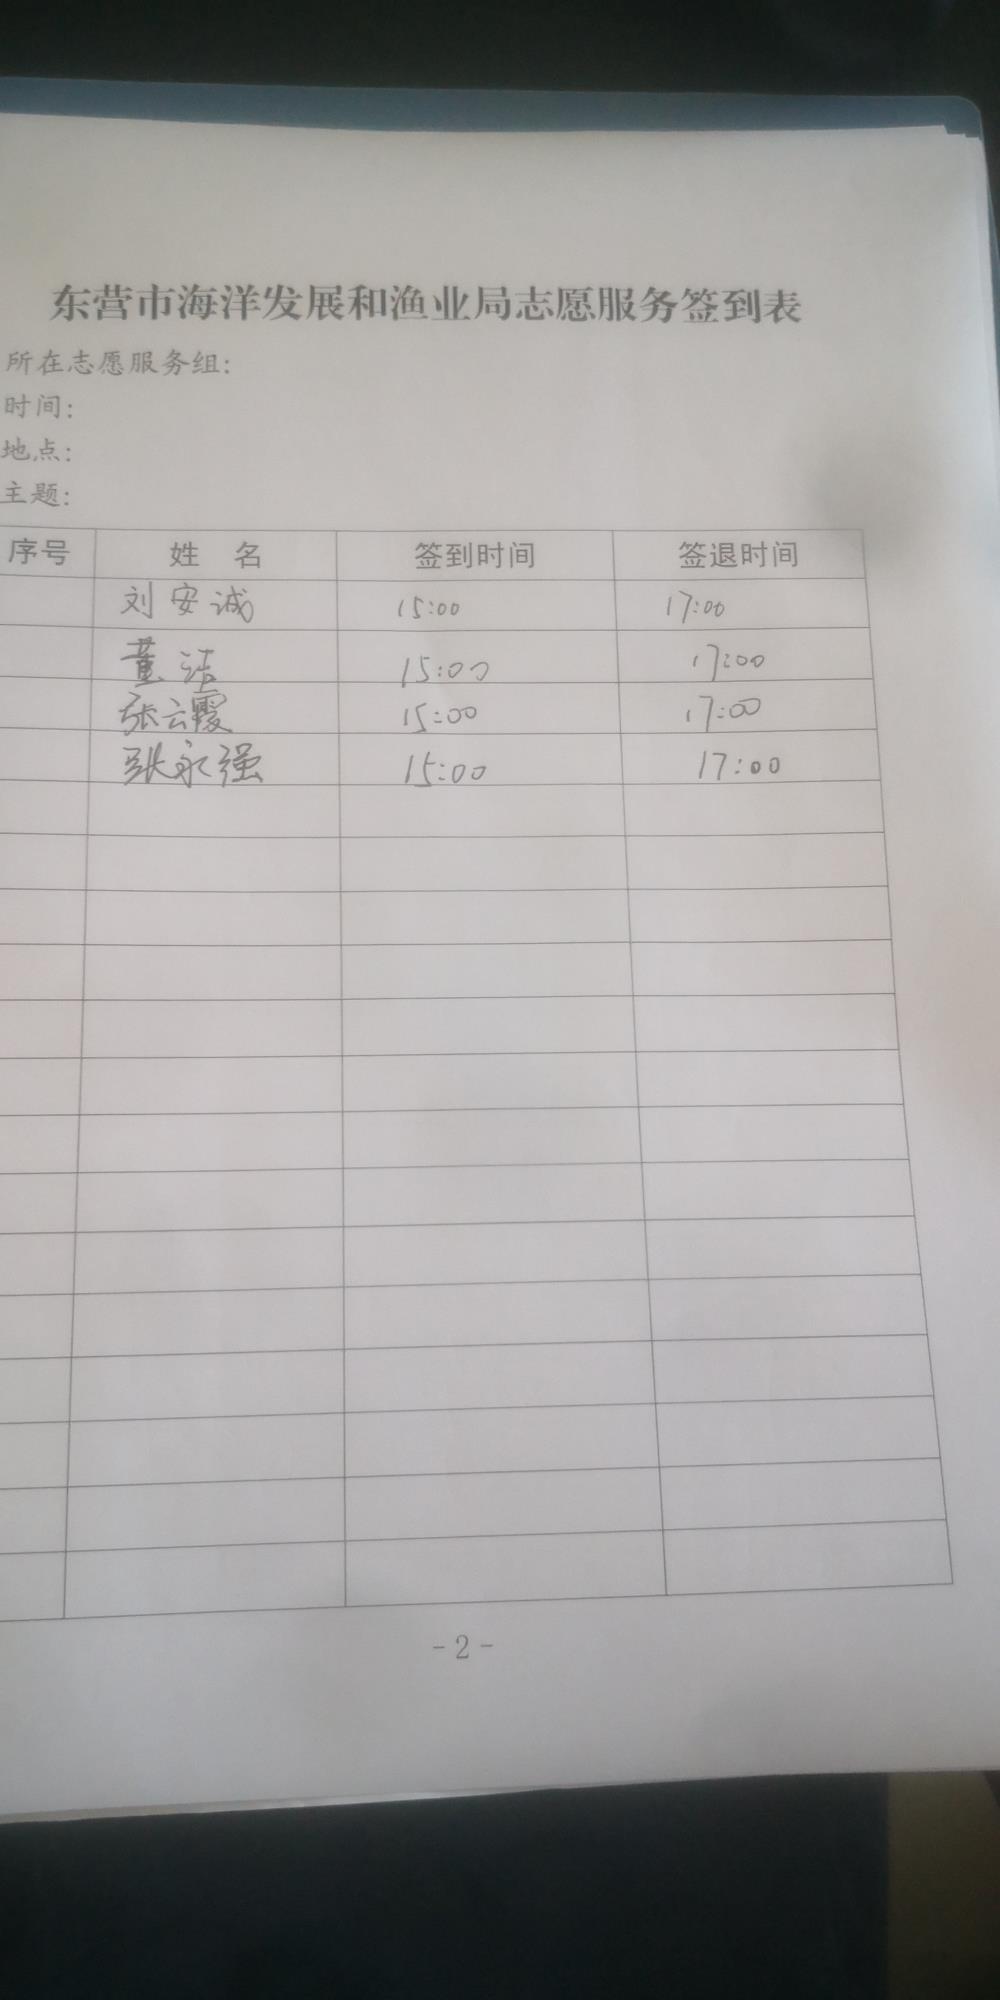 东营市海洋发展和渔业局志愿服务签到表
所在志愿服务组:
时间:
地点:
主题:
序号 姓 名 签到时间 签退时间
刘安诚 15:00 17:00
董洁 15:00 17:00
张云霞 15:00 17:00
张永强 15:00 17:00
- 2 -